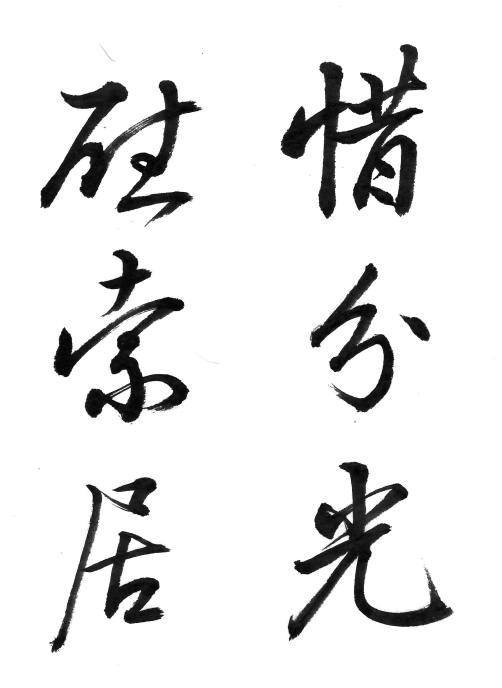 惜分光
索居